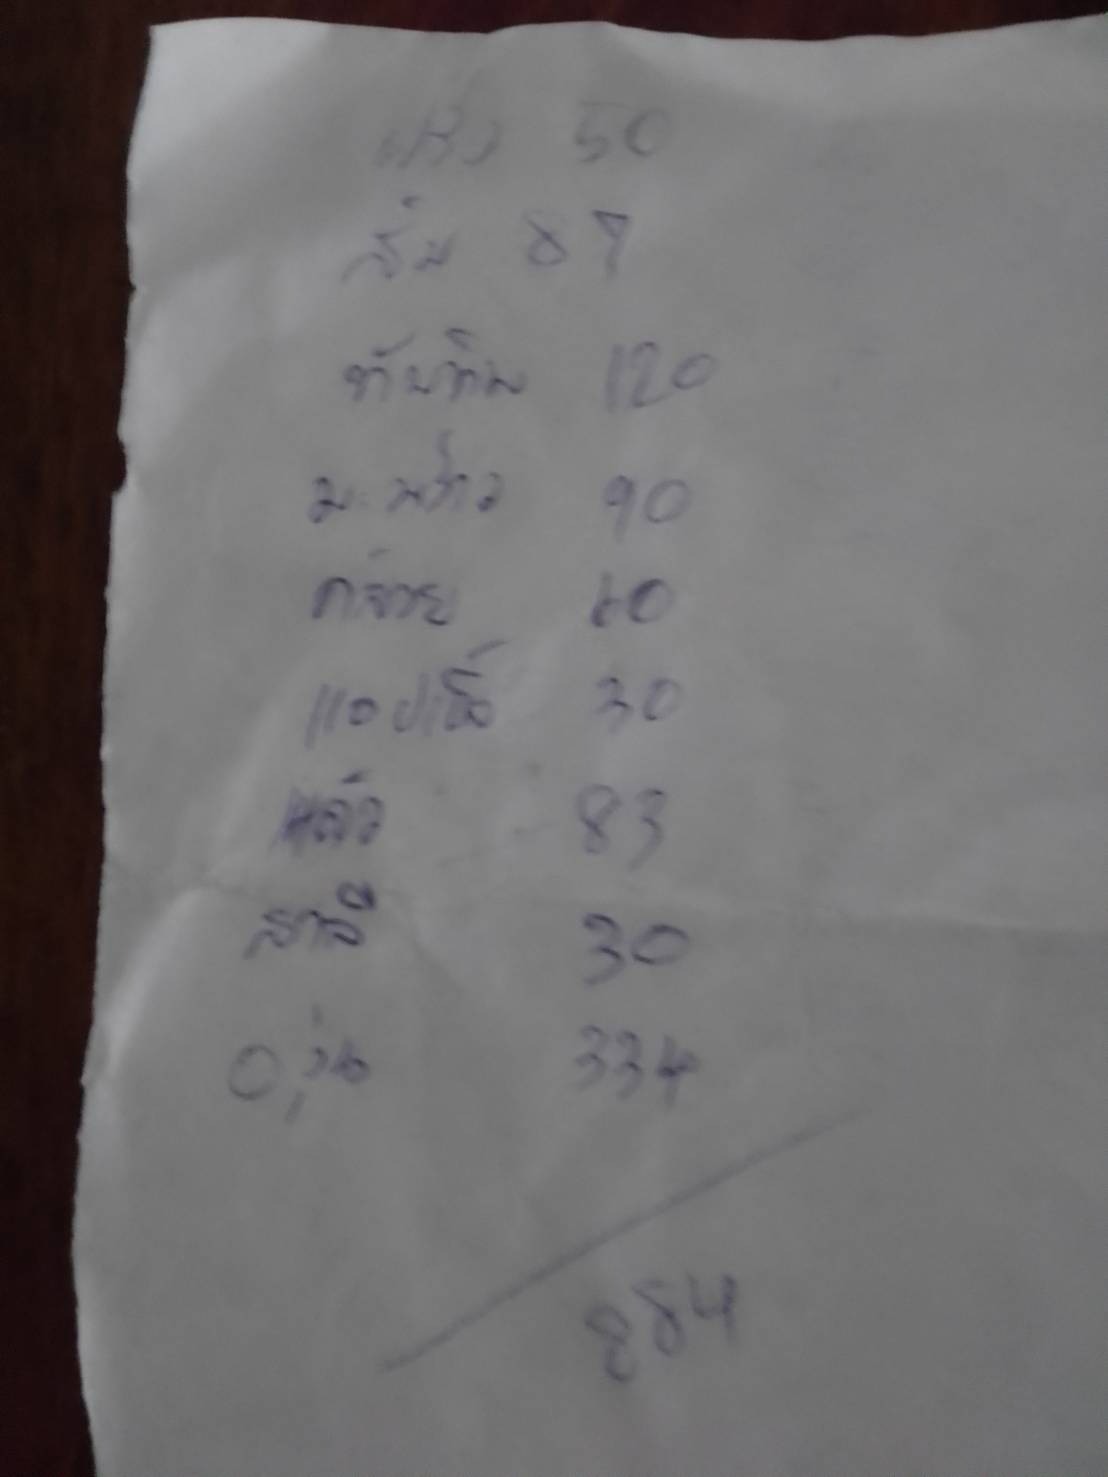 50
ส้ม 87
ทับทิม 120
มะพร้าว 90
กล้วย 60
แอปเปิ้ล 30
แก้ว 83
สาลี่ 30
องุ่น 334
884